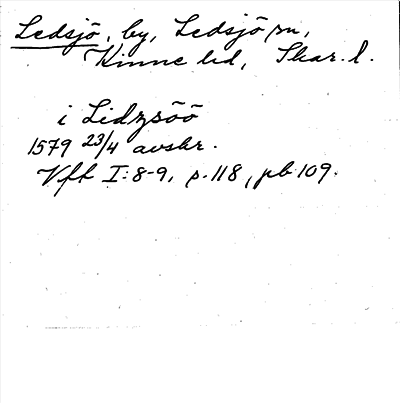 Ledsjö, by, Ledsjö sn,
Kinne hd, Skar. l.
i Lidzsöö
1579 23/4 avskr.
Vft I:8-9, s. 118, pb 109.